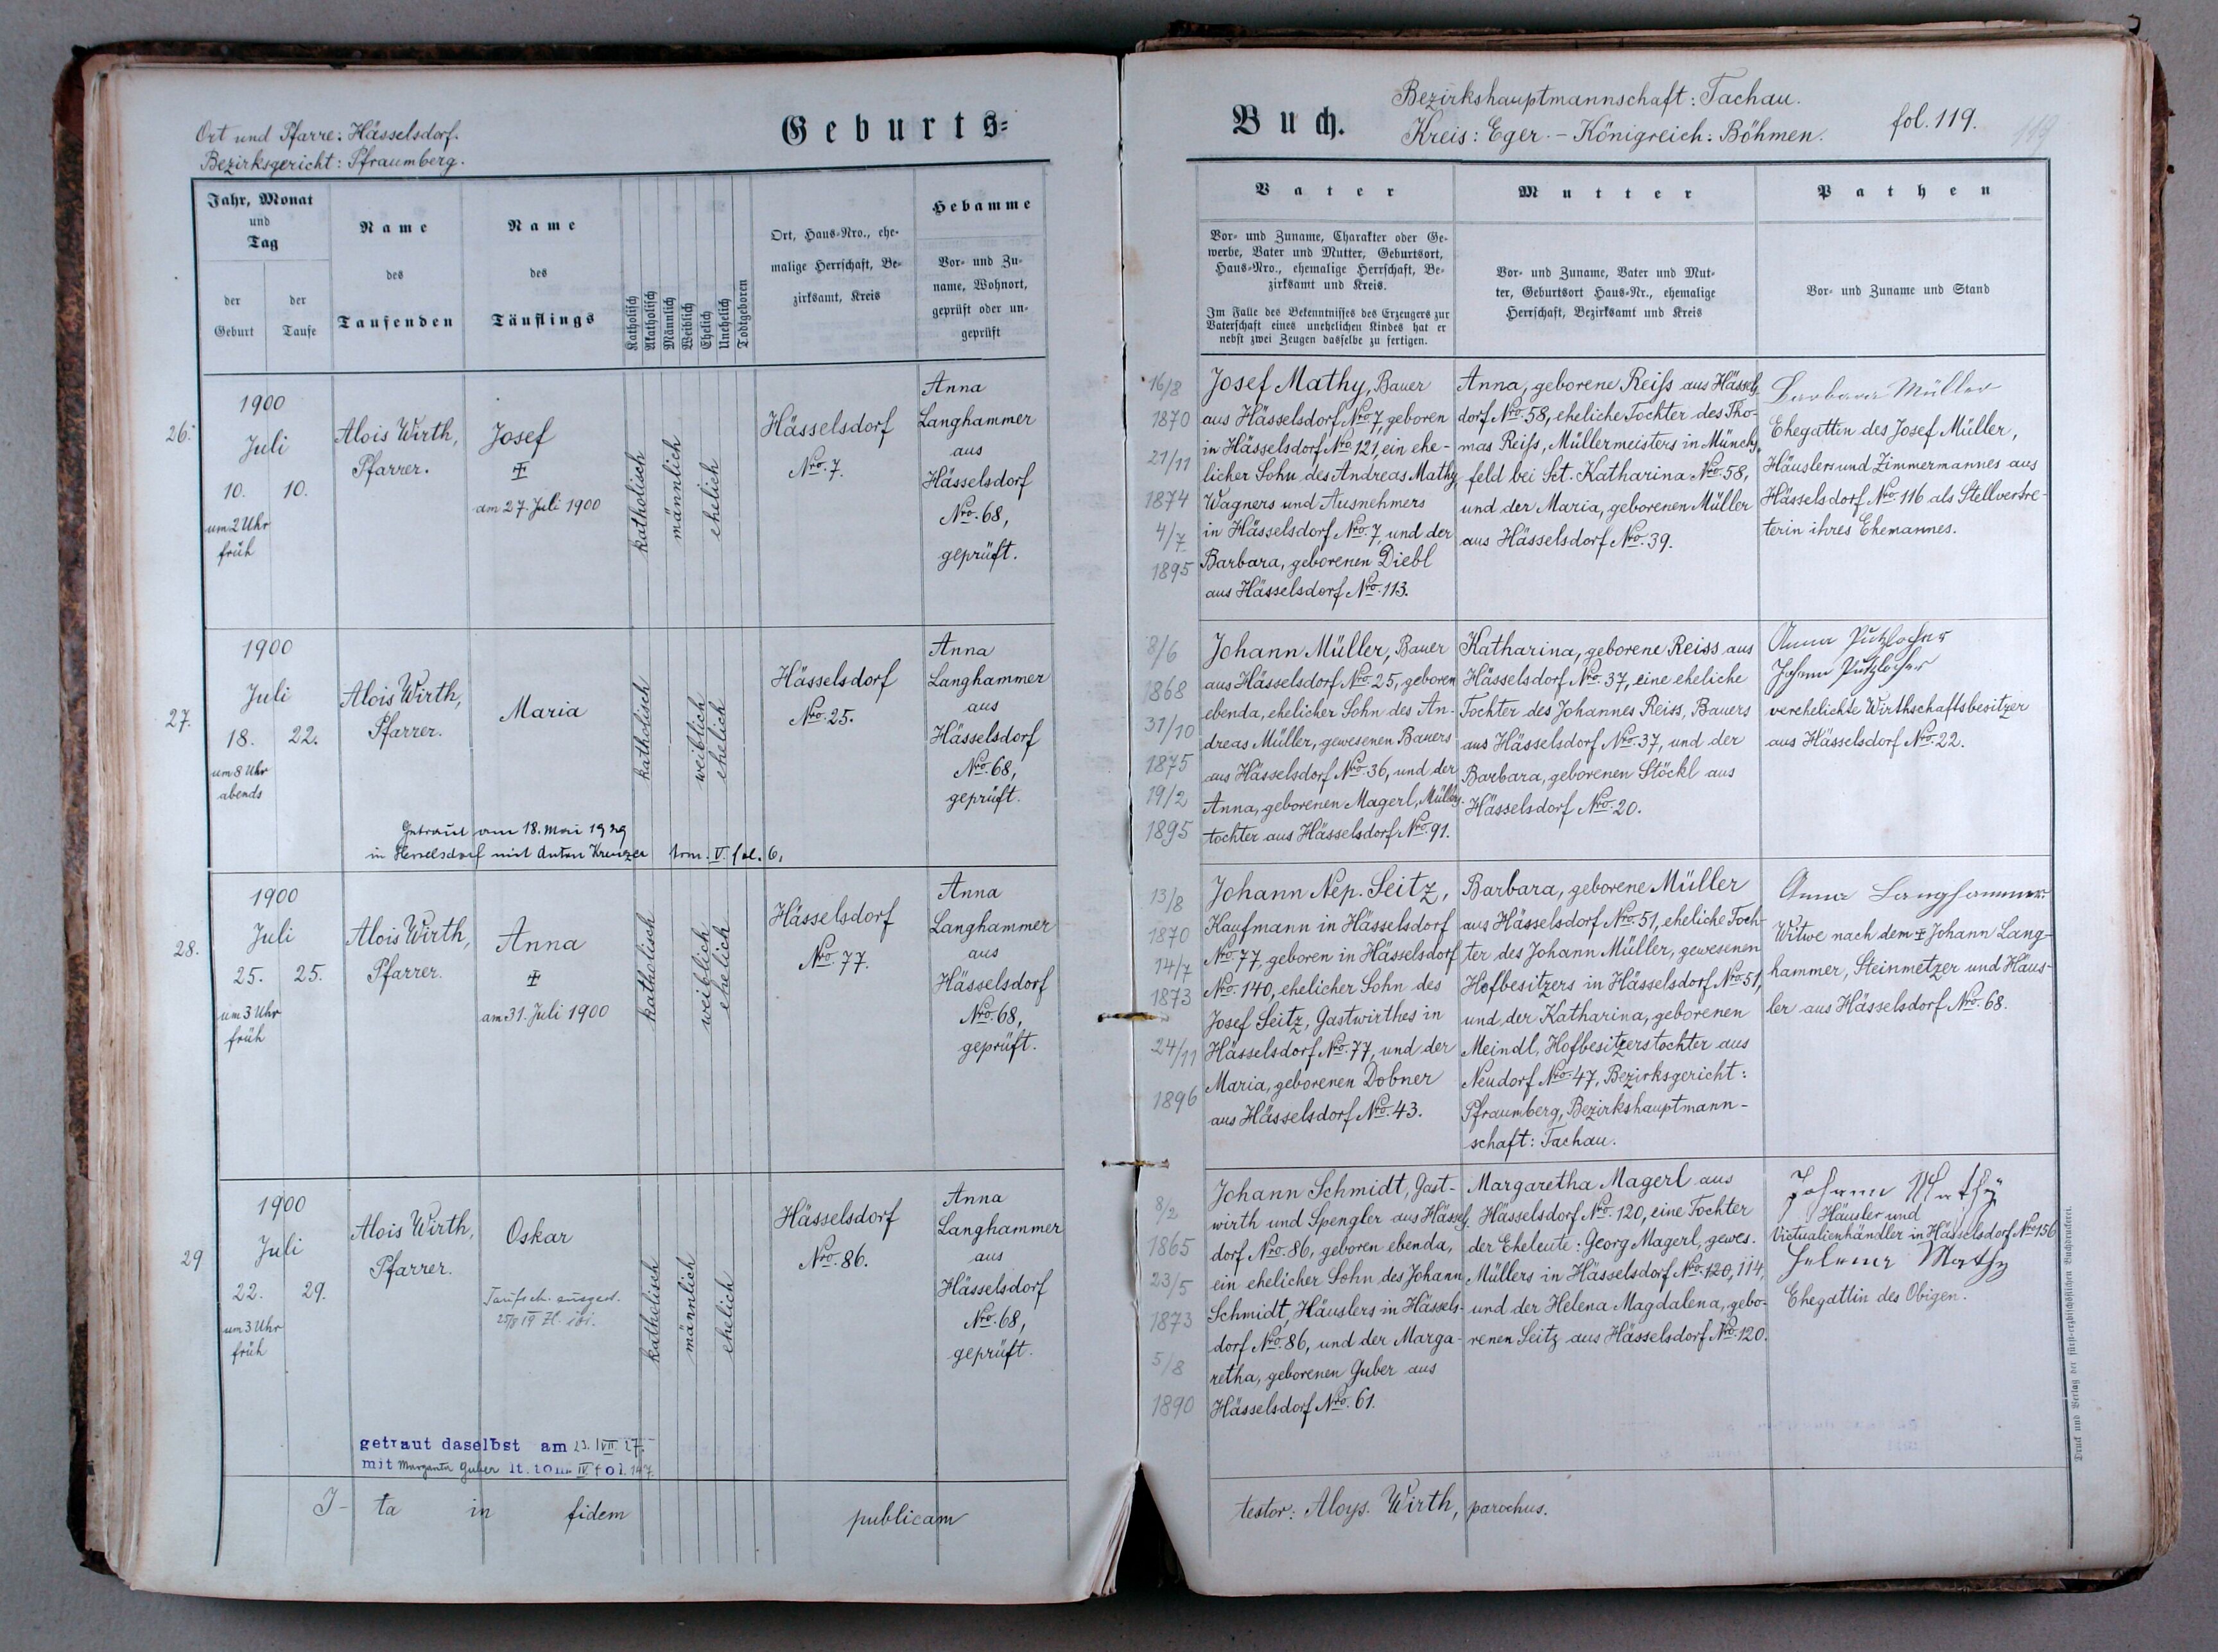 Ort und Pfarre: Hässelsdorf.
Bezirksgericht: Pfraumberg.
Geburts-
Jahr, Monat
und
Tag
der
Geburt
der
Taufe
Name
des
Taufenden
Name
des
Täuflings
Katholisch
Akatholisch
Männlich
Weiblich
Ehelich
Unehelich
Todtgeboren
Ort, Haus-Nro., ehe-
malige Herrschaft, Be-
zirksamt, Kreis
Hebamme
Vor- und Zu-
name, Wohnort,
geprüft oder un-
geprüft
26.
1900
Juli
10. 10.
um 2 Uhr
früh
Alois Wirth,
Pfarrer.
Josef
am 27. Juli 1900
katholisch
männlich
ehelich
Hässelsdorf
Nro. 7.
Anna
Langhammer
aus
Hässelsdorf
Nro. 68,
geprüft.
27.
1900
Juli
18. 22.
um 8 Uhr
abends
Alois Wirth,
Pfarrer.
Maria
katholisch
weiblich
ehelich
Hässelsdorf
Nro. 25.
Anna
Langhammer
aus
Hässelsdorf
Nro. 68,
geprüft.
Getraut am 18. Mai 1929
in Hesselsdorf mit Anton Kreuzer tom. V. fol. 6.
28.
1900
Juli
25. 25.
um 3 Uhr
früh
Alois Wirth,
Pfarrer.
Anna
am 31. Juli 1900
katholisch
weiblich
ehelich
Hässelsdorf
Nro. 77.
Anna
Langhammer
aus
Hässelsdorf
Nro. 68,
geprüft.
29
1900
Juli
22. 29.
um 3 Uhr
früh
Alois Wirth,
Pfarrer.
Oskar
Taufsch. ausgest.
katholisch
männlich
ehelich
Hässelsdorf
Nro. 86.
Anna
Langhammer
aus
Hässelsdorf
Nro. 68,
geprüft.
getraut daselbst am 23. VII. 27.
mit Margareta Guber lt. tom. IV. fol. 147.
I- ta in fidem publicam
Buch.
Bezirkshauptmannschaft: Tachau.
Kreis: Eger. - Königreich: Böhmen.
fol. 119.
119
Vater
Vor- und Zuname, Charakter oder Ge-
werbe, Vater und Mutter, Geburtsort,
Haus-Nro., ehemalige Herrschaft, Be-
zirksamt und Kreis.
Im Falle des Bekenntnisses des Erzeugers zur
Vaterschaft eines unehelichen Kindes hat er
nebst zwei Zeugen dasselbe zu fertigen.
Mutter
Vor- und Zuname, Vater und Mut-
ter, Geburtsort Haus-Nr., ehemalige
Herrschaft, Bezirksamt und Kreis
Pathen
Vor- und Zuname und Stand
16/8
1870
21/11
1874
4/7
1895
Josef Mathy, Bauer
aus Hässelsdorf Nro. 7, geboren
in Hässelsdorf Nro. 121, ein ehe-
licher Sohn des Andreas Mathy,
Wagners und Ausnehmers
in Hässelsdorf Nro. 7, und der
Barbara, geborenen Diebl
aus Hässelsdorf Nro. 113.
Anna, geborene Reiß aus Hässels-
dorf Nro. 58, eheliche Tochter des Tho-
mas Reiß, Müllermeisters in Münchs-
feld bei Sct. Katharina Nro. 58,
und der Maria, geborenen Müller
aus Hässelsdorf Nro. 39.
Barbara Müller
Ehegattin des Josef Müller,
Häuslers und Zimmermannes aus
Hässelsdorf Nro. 116 als Stellvertre-
terin ihres Ehemannes.
8/6
1868
31/10
1875
19/2
1895
Johann Müller, Bauer
aus Hässelsdorf Nro. 25, geboren
ebenda, ehelicher Sohn des An-
dreas Müller, gewesenen Bauers
aus Hässelsdorf Nro. 36, und der
Anna, geborenen Magerl, Müllers-
tochter aus Hässelsdorf Nro. 91.
Katharina, geborene Reiss aus
Hässelsdorf Nro. 37, eine eheliche
Tochter des Johannes Reiss, Bauers
aus Hässelsdorf Nro. 37, und der
Barbara, geborenen Stöckl aus
Hässelsdorf Nro. 20.
Anna Putzlocher
Johann Putzlocher
verehelichte Wirthschaftsbesitzer
aus Hässelsdorf Nro. 22.
13/8
1870
14/7
1873
24/11
1896
Johann Nep. Seitz,
Kaufmann in Hässelsdorf
Nro. 77, geboren in Hässelsdorf
Nro. 140, ehelicher Sohn des
Josef Seitz, Gastwirthes in
Hässelsdorf Nro. 77, und der
Maria, geborenen Dobner
aus Hässelsdorf Nro. 43.
Barbara, geborene Müller
aus Hässelsdorf Nro. 51, eheliche Toch-
ter des Johann Müller, gewesenen
Hofbesitzers in Hässelsdorf Nro. 51,
und der Katharina, geborenen
Meindl, Hofbesitzerstochter aus
Neudorf Nro. 47, Bezirksgericht:
Pfraumberg, Bezirkshauptmann-
schaft: Tachau.
Anna Langhammer
Witwe nach dem Johann Lang-
hammer, Steinmetzer und Häus-
ler aus Hässelsdorf Nro. 68.
8/2
1865
23/5
1873
5/8
1890
Johann Schmidt, Gast-
wirth und Spengler aus Hässels-
dorf Nro. 86, geboren ebenda,
ein ehelicher Sohn des Johann
Schmidt, Häuslers in Hässels-
dorf Nro. 86, und der Marga-
retha, geborenen Guber aus
Hässelsdorf Nro. 61.
Margaretha Magerl aus
Hässelsdorf Nro. 120, eine Tochter
der Eheleute: Georg Magerl, gewes.
Müllers in Hässelsdorf Nro. 120, 114,
und der Helena Magdalena, gebo-
renen Seitz aus Hässelsdorf Nro. 120.
Johann Mathy
Häusler und
Victualienhändler in Hässelsdorf Nro. 156
Helena Mathy
Ehegattin des Obigen.
testor: Aloys. Wirth, parochus.
Druck und Verlag der fürst-erzbischöflichen Buchdruckerei.